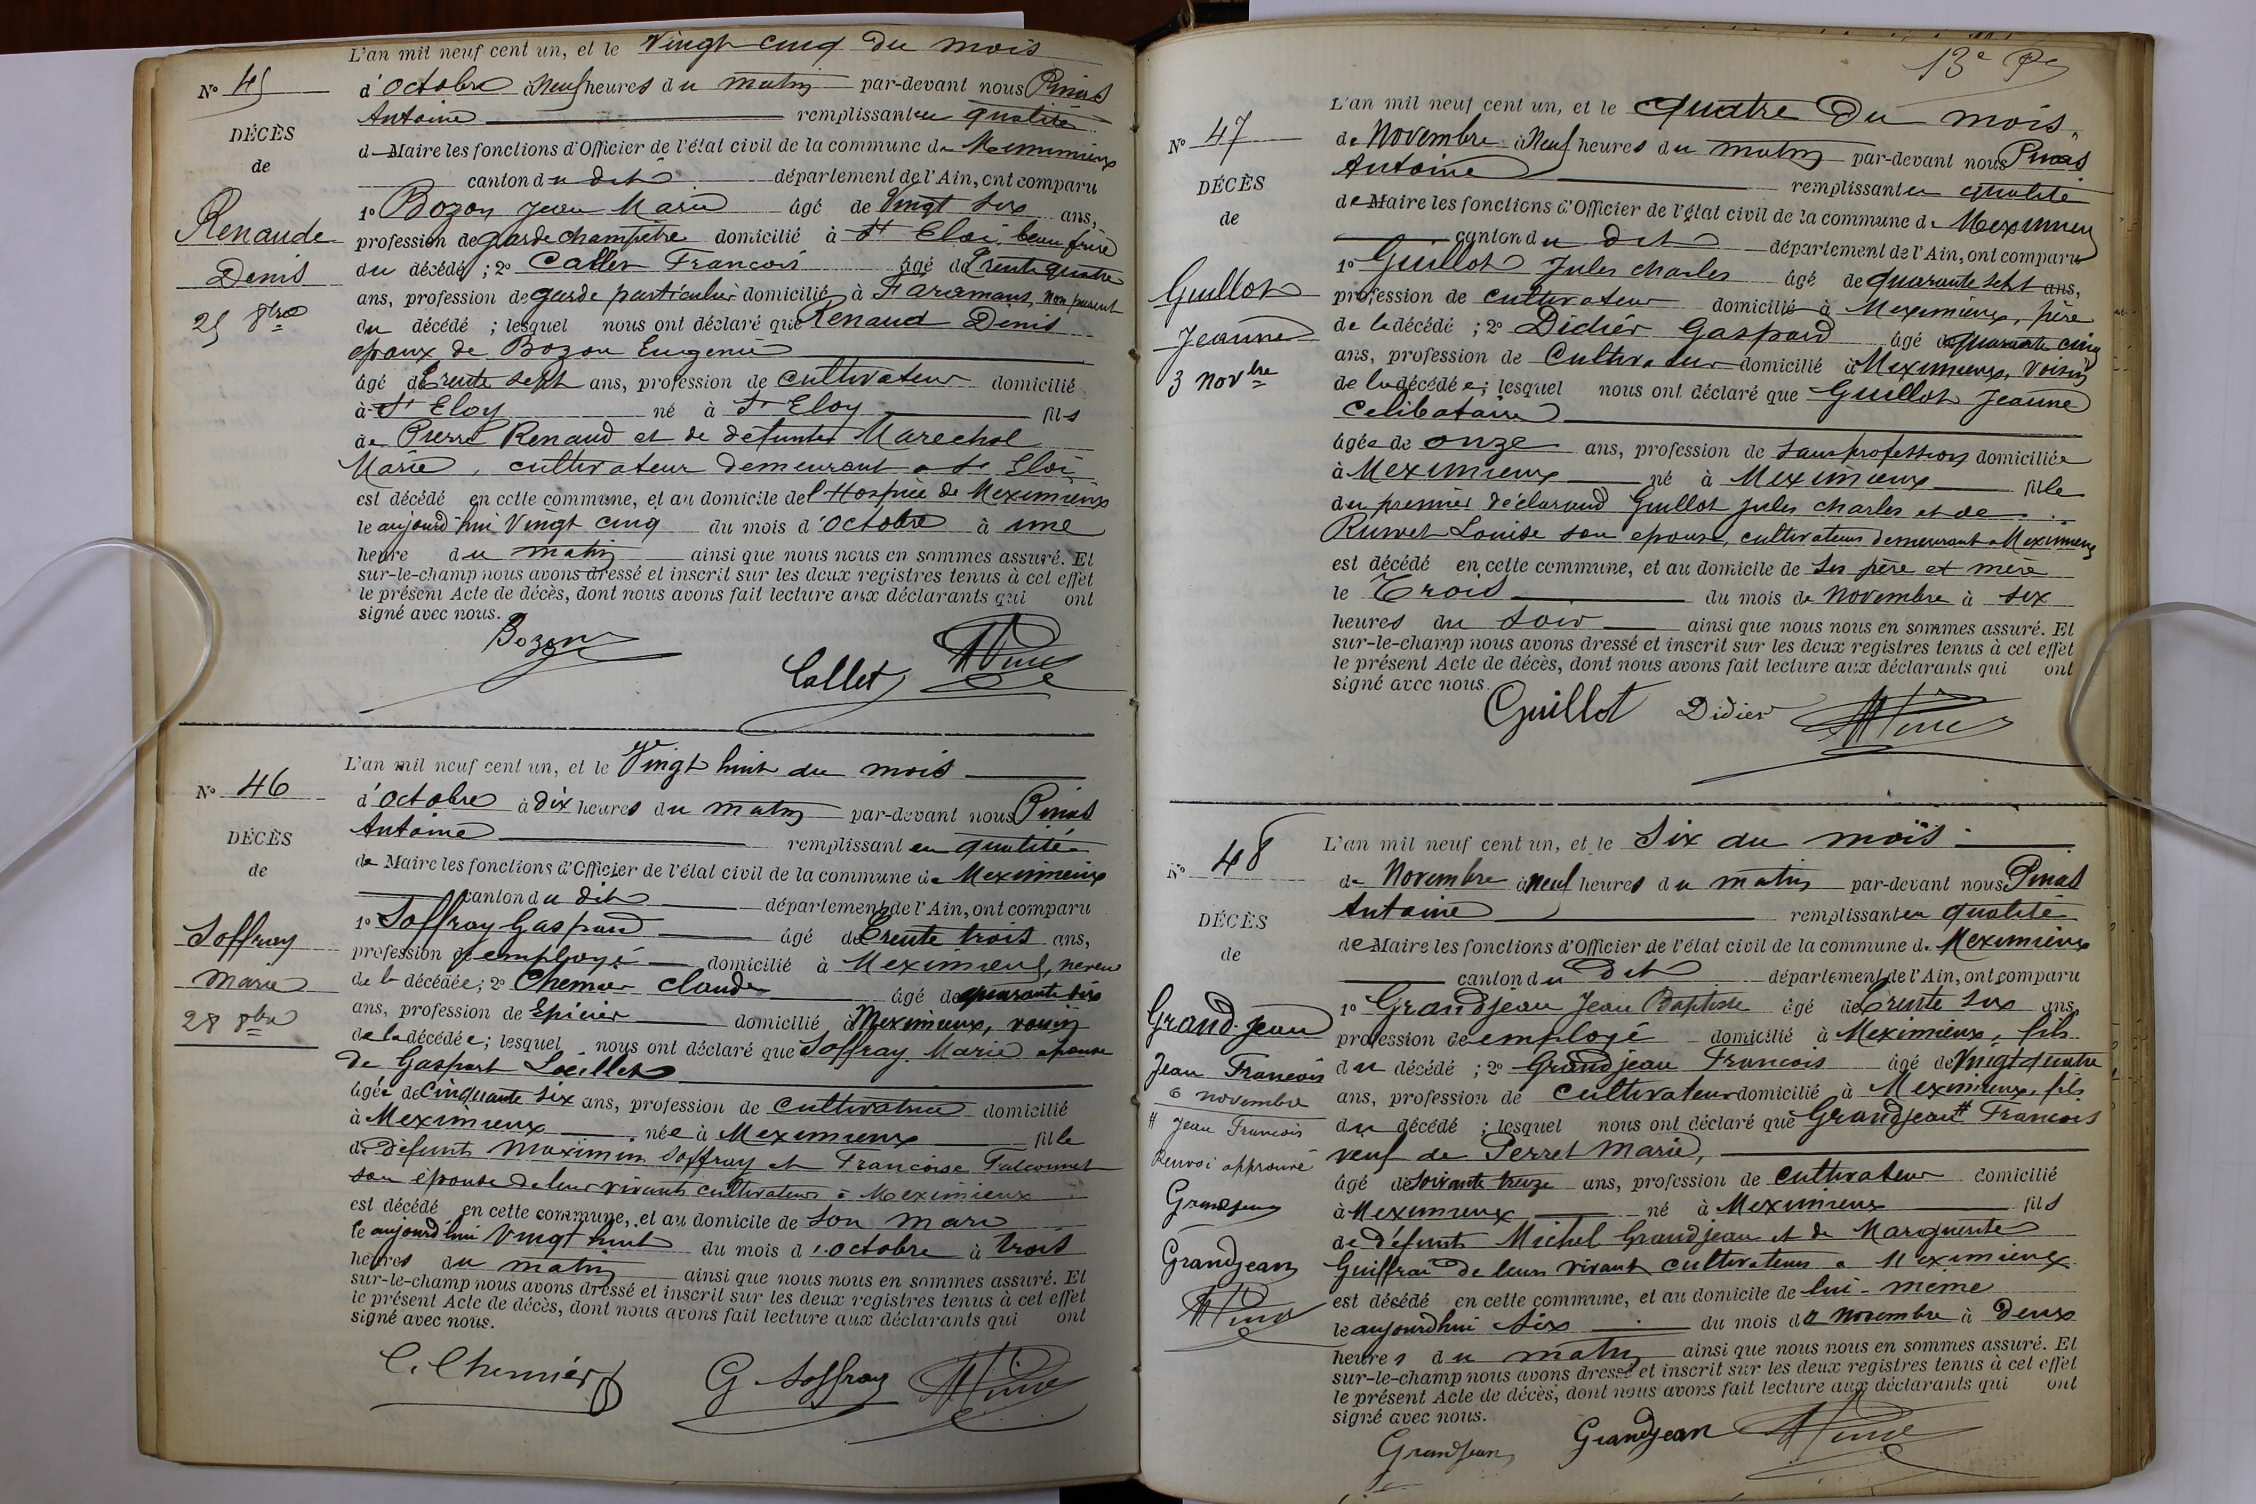 L'an mil neuf cent un, et le Vingt cinq du mois
N° 45
d'Octobre à Neuf heures du matin par-devant nous Pinas
Antoine remplissant en qualité
DÉCÈS
de
Renaud
Denis
25 8bre
de Maire les fonctions d'Officier de l'état civil de la commune de Meximieux
canton du dit département de l'Ain, ont comparu
1° Bozon Jean Marie âgé de Vingt six ans,
profession de garde champêtre domicilié à St Eloi, beau frère
du décédé ; 2° Callet François âgé de Trente quatre
ans, profession de garde particulier domicilié à Faramans, non parent
du décédé ; lesquel nous ont déclaré que Renaud Denis
époux de Bozon Eugenie
âgé de Trente sept ans, profession de cultivateur domicilié
à St Eloy né à St Eloy fils
de Pierre Renaud et de defunte Marechal
Marie, cultivateur demeurant a St Eloi
est décédé en cette commune, et au domicile de l'Hospice de Meximieux
le aujourd'hui Vingt cinq du mois d'Octobre à une
heure du matin ainsi que nous nous en sommes assuré. Et
sur-le-champ nous avons dressé et inscrit sur les deux registres tenus à cet effet
le présent Acte de décès, dont nous avons fait lecture aux déclarants qui ont
signé avec nous.
Bozon
Callet
APinas
L'an mil neuf cent un, et le Vingt huit du mois
N° 46
d'Octobre à dix heures du matin par-devant nous Pinas
Antoine remplissant en qualité
DÉCÈS
de
Soffray
Marie
28 8bre
de Maire les fonctions d'Officier de l'état civil de la commune de Meximieux
canton du dit département de l'Ain, ont comparu
1° Soffray Gaspard âgé de Trente trois ans,
profession de employé domicilié à Meximieux, neveu
de la décédée ; 2° Chemier Claude âgé de quarante six
ans, profession de Epicier domicilié à Meximieux, voisin
de la décédée ; lesquel nous ont déclaré que Soffray Marie épouse
de Gaspart Loeillet
âgée de Cinquante six ans, profession de cultivatrice domicilié
à Meximieux née à Meximieux fille
de défunts Maximin Soffray et Francoise Falconnet
son épouse de leur vivants cultivateurs à Meximieux
est décédé en cette commune, et au domicile de son mari
le aujourd'hui Vingt huit du mois d'octobre à trois
heures du matin ainsi que nous nous en sommes assuré. Et
sur-le-champ nous avons dressé et inscrit sur les deux registres tenus à cet effet
le présent Acte de décès, dont nous avons fait lecture aux déclarants qui ont
signé avec nous.
C. Chemier
G Soffray
APinas
13e
L'an mil neuf cent un, et le quatre du mois
N° 47
de Novembre à Neuf heures du matin par-devant nous Pinas
Antoine remplissant en qualité
DÉCÈS
de
Guillot
Jeanne
3 Novbre
de Maire les fonctions d'Officier de l'état civil de la commune de Meximieux
canton du dit département de l'Ain, ont comparu
1° Guillot Jules Charles âgé de quarante sept ans,
profession de cultivateur domicilié à Meximieux, père
de la décédé ; 2° Didier Gaspard âgé de quarante cinq
ans, profession de Cultivateur domicilié à Meximieux, voisin
de la décédée ; lesquel nous ont déclaré que Guillot Jeanne
celibataire
âgée de onze ans, profession de sans profession domiciliée
à Meximieux né à Meximieux fille
du premier déclarand Guillot Jules Charles et de
Louise son epouse, cultivateurs demeurant a Meximieux
est décédé en cette commune, et au domicile de ses père et mère
le Trois du mois de Novembre à six
heures du soir ainsi que nous nous en sommes assuré. Et
sur-le-champ nous avons dressé et inscrit sur les deux registres tenus à cet effet
le présent Acte de décès, dont nous avons fait lecture aux déclarants qui ont
signé avec nous.
Guillot
Didier
APinas
L'an mil neuf cent un, et le Six du mois
N° 48
de Novembre à neuf heures du matin par-devant nous Pinas
Antoine remplissant en qualité
DÉCÈS
de
Grandjean
Jean Francois
6 novembre
# Jean Francois
Renvoi approuvé
Grandjean
Grandjean
APinas
de Maire les fonctions d'Officier de l'état civil de la commune de Meximieux
canton du dit département de l'Ain, ont comparu
1° Grandjean Jean Baptiste âgé de Trente six ans,
profession de employé domicilié à Meximieux, fils
du décédé ; 2° Grandjean Francois âgé de Vingt quatre
ans, profession de cultivateur domicilié à Meximieux, fils
du décédé ; lesquel nous ont déclaré que Grandjean # Francois
veuf de Perret Marie,
âgé de soixante treize ans, profession de cultivateur domicilié
à Meximieux né à Meximieux fils
de défunts Michel Grandjean et de Marguerite
Guiffrai de leurs vivant cultivateurs a Meximieux
est décédé en cette commune, et au domicile de lui-meme
le aujourd'hui six du mois de novembre à Deux
heures du matin ainsi que nous nous en sommes assuré. Et
sur-le-champ nous avons dressé et inscrit sur les deux registres tenus à cet effet
le présent Acte de décès, dont nous avons fait lecture aux déclarants qui ont
signé avec nous.
Grandjean
Grandjean
APinas